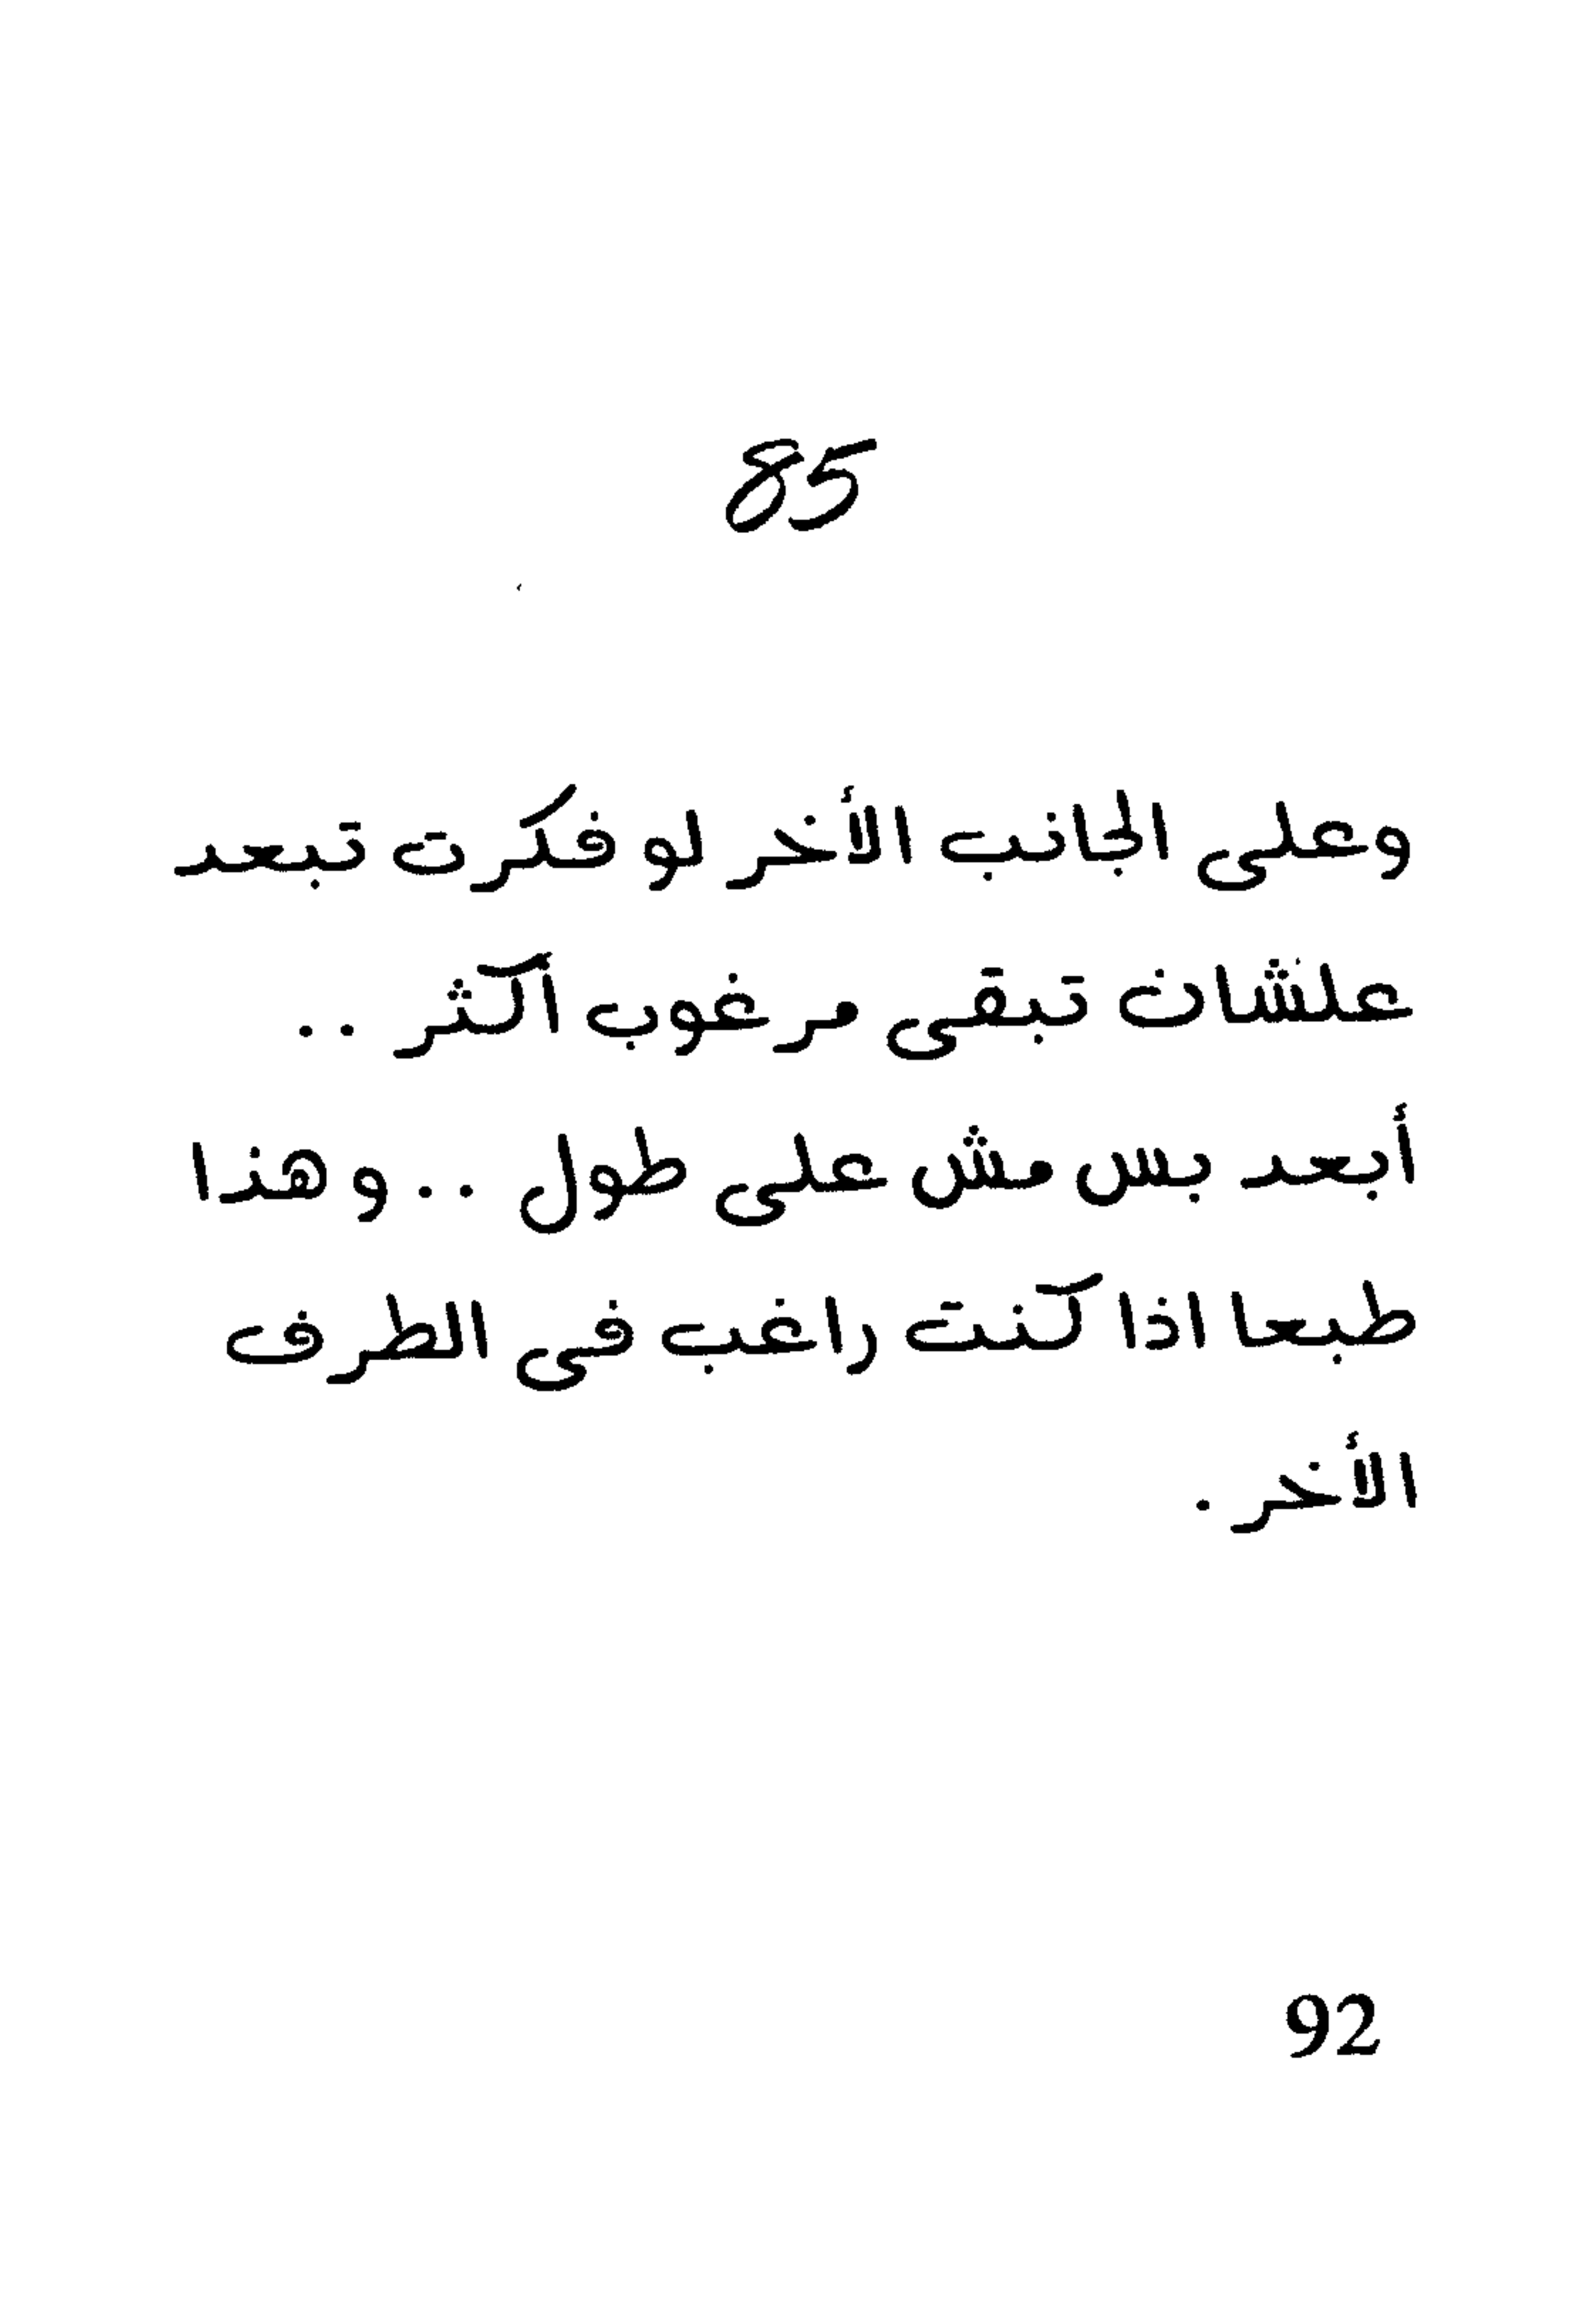 85
وعلى الجانب الأخر لو فكرت تبعد
علشان تبقى مرغوب أكثر ..
أبعد بس مش على طول .. و هذا
طبعا اذا كنت راغب فى الطرف
الأخر .
92